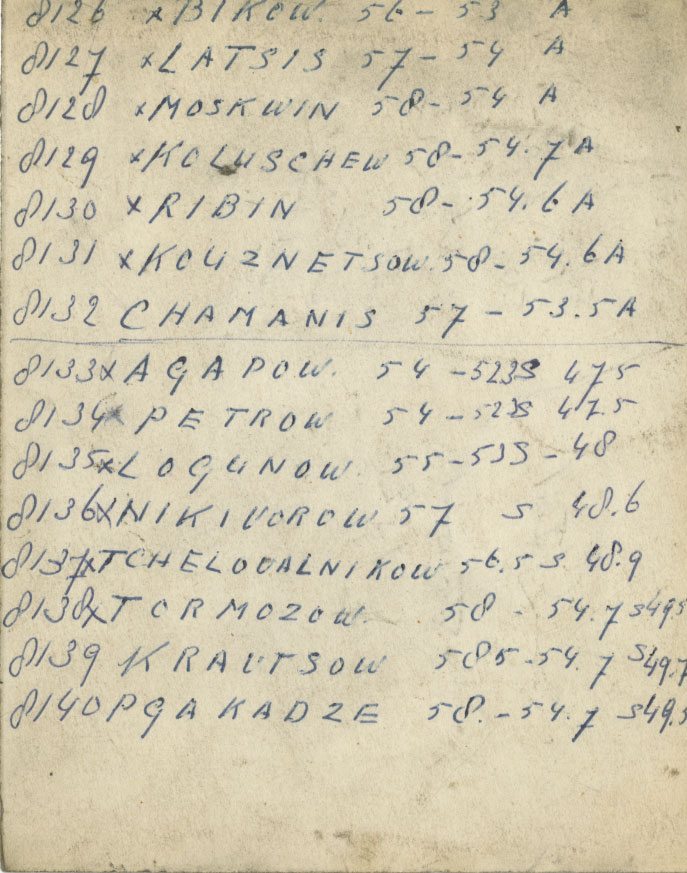 8126 xBIKOW. 56-53 A
8127 xLATSIS 57-54 A
8128 xMOSKWIN 58-54 A
8129 xKOLUSCHEW 58-54.7A
8130 xRIBIN 58-54.6A
8131 xKOUZNETSOW. 58-54.6A
8132 CHAMANIS 57-53.5A
8133xAGAPOW. 54-523S 475
8134x PETROW 54-523S 47.5
8135xLOGUNOW. 55-53S-48
8136xNIKIVOROW 57 S 48.6
8137xTCHELOVALNIKOW 56.5 S 48.9
8138xTORMOZOW 58-54.7 S49.5
8139 KRAVTSOW 585-54.7 S49.7
8140PGAKADZE 58.-54.7 S49.5